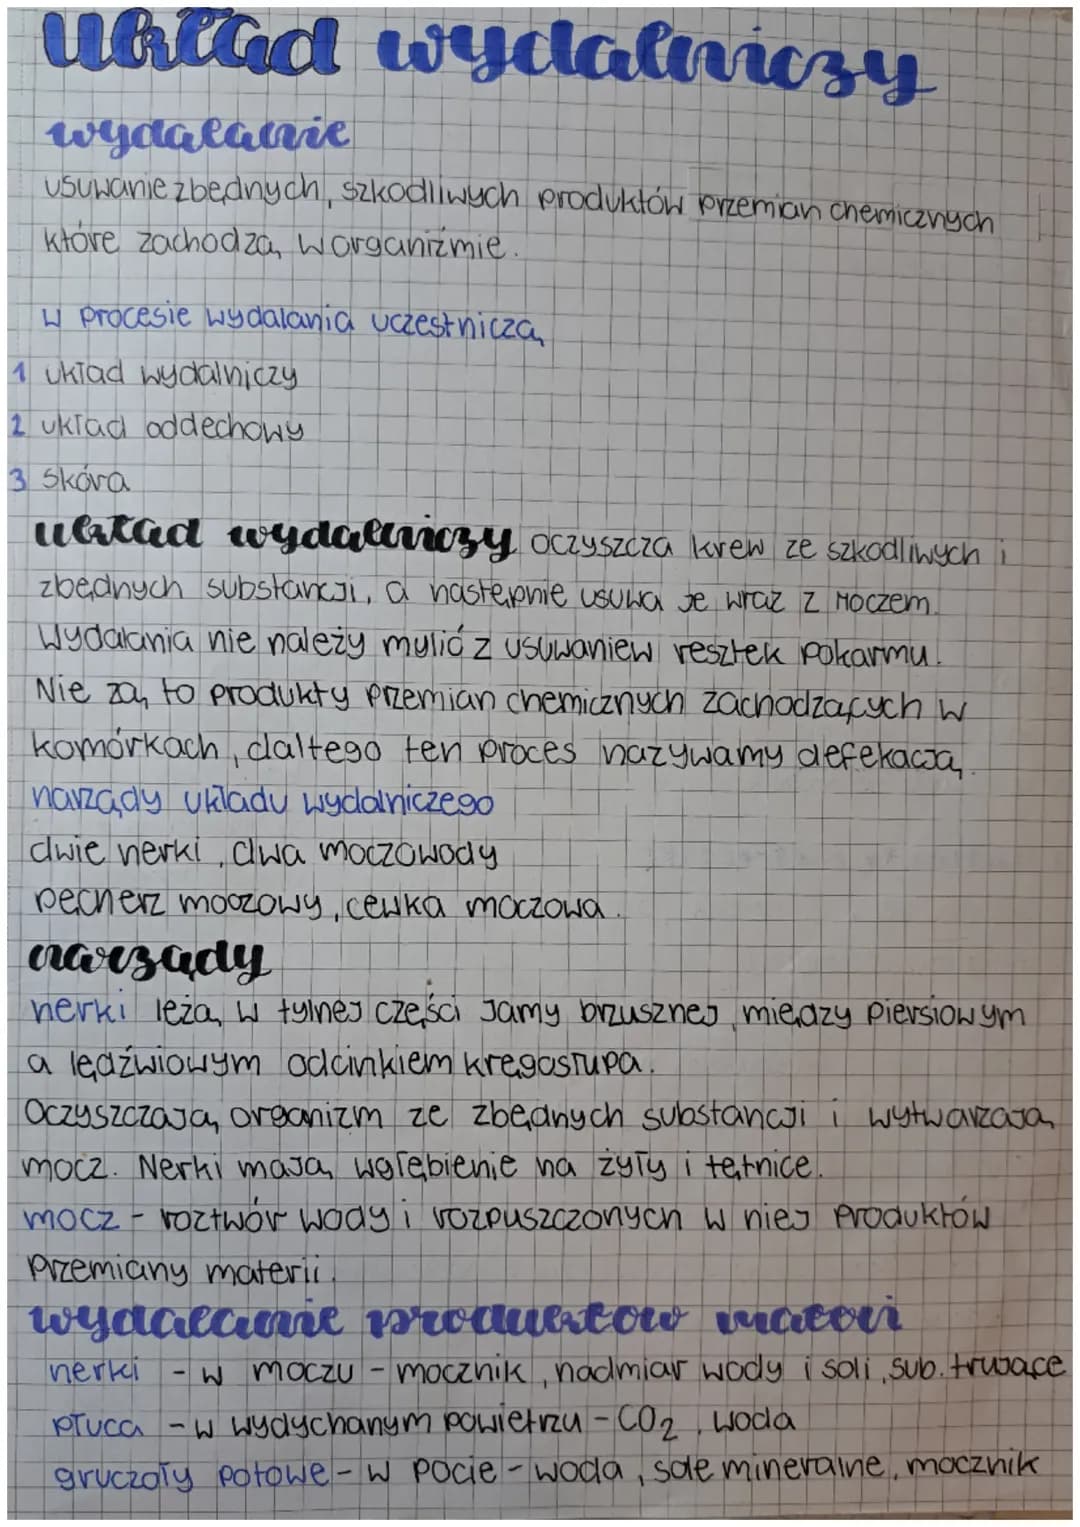 układ wydalniczy
wydalanie
usuwanie zbędnych, szkodliwych produktów przemian chemicznych
które zachodzą w organiźmie.
w procesie wydalania uczestniczą
1 układ wydalniczy
2 układ oddechowy
3 skóra
układ wydalniczy oczyszcza krew ze szkodliwych i
zbędnych substancji, a następnie usuwa je wraz z moczem.
Wydalania nie należy mylić z usuwaniew resztek pokarmu.
Nie zą to produkty przemian chemicznych zachodzących w
komórkach, daltego ten proces nazywamy defekacją.
narządy układu wydalniczego
dwie nerki, dwa moczowody
pęcherz moczowy, cewka moczowa.
narządy
nerki leżą w tylnej części jamy brzusznej, między piersiowym
a lędźwiowym odcinkiem kręgosłupa.
Oczyszczają organizm ze zbędnych substancji i wytwarzają
mocz. Nerki mają wgłębienie na żyły i tętnice.
mocz - roztwór wody i rozpuszczonych w niej produktów
przemiany materii.
wydalanie produktów materi
nerki - w moczu - mocznik, nadmiar wody i soli, sub. trujące
płuca - w wydychanym powietrzu - CO2, woda
gruczoły potowe - w pocie - woda, sole mineralne, mocznik